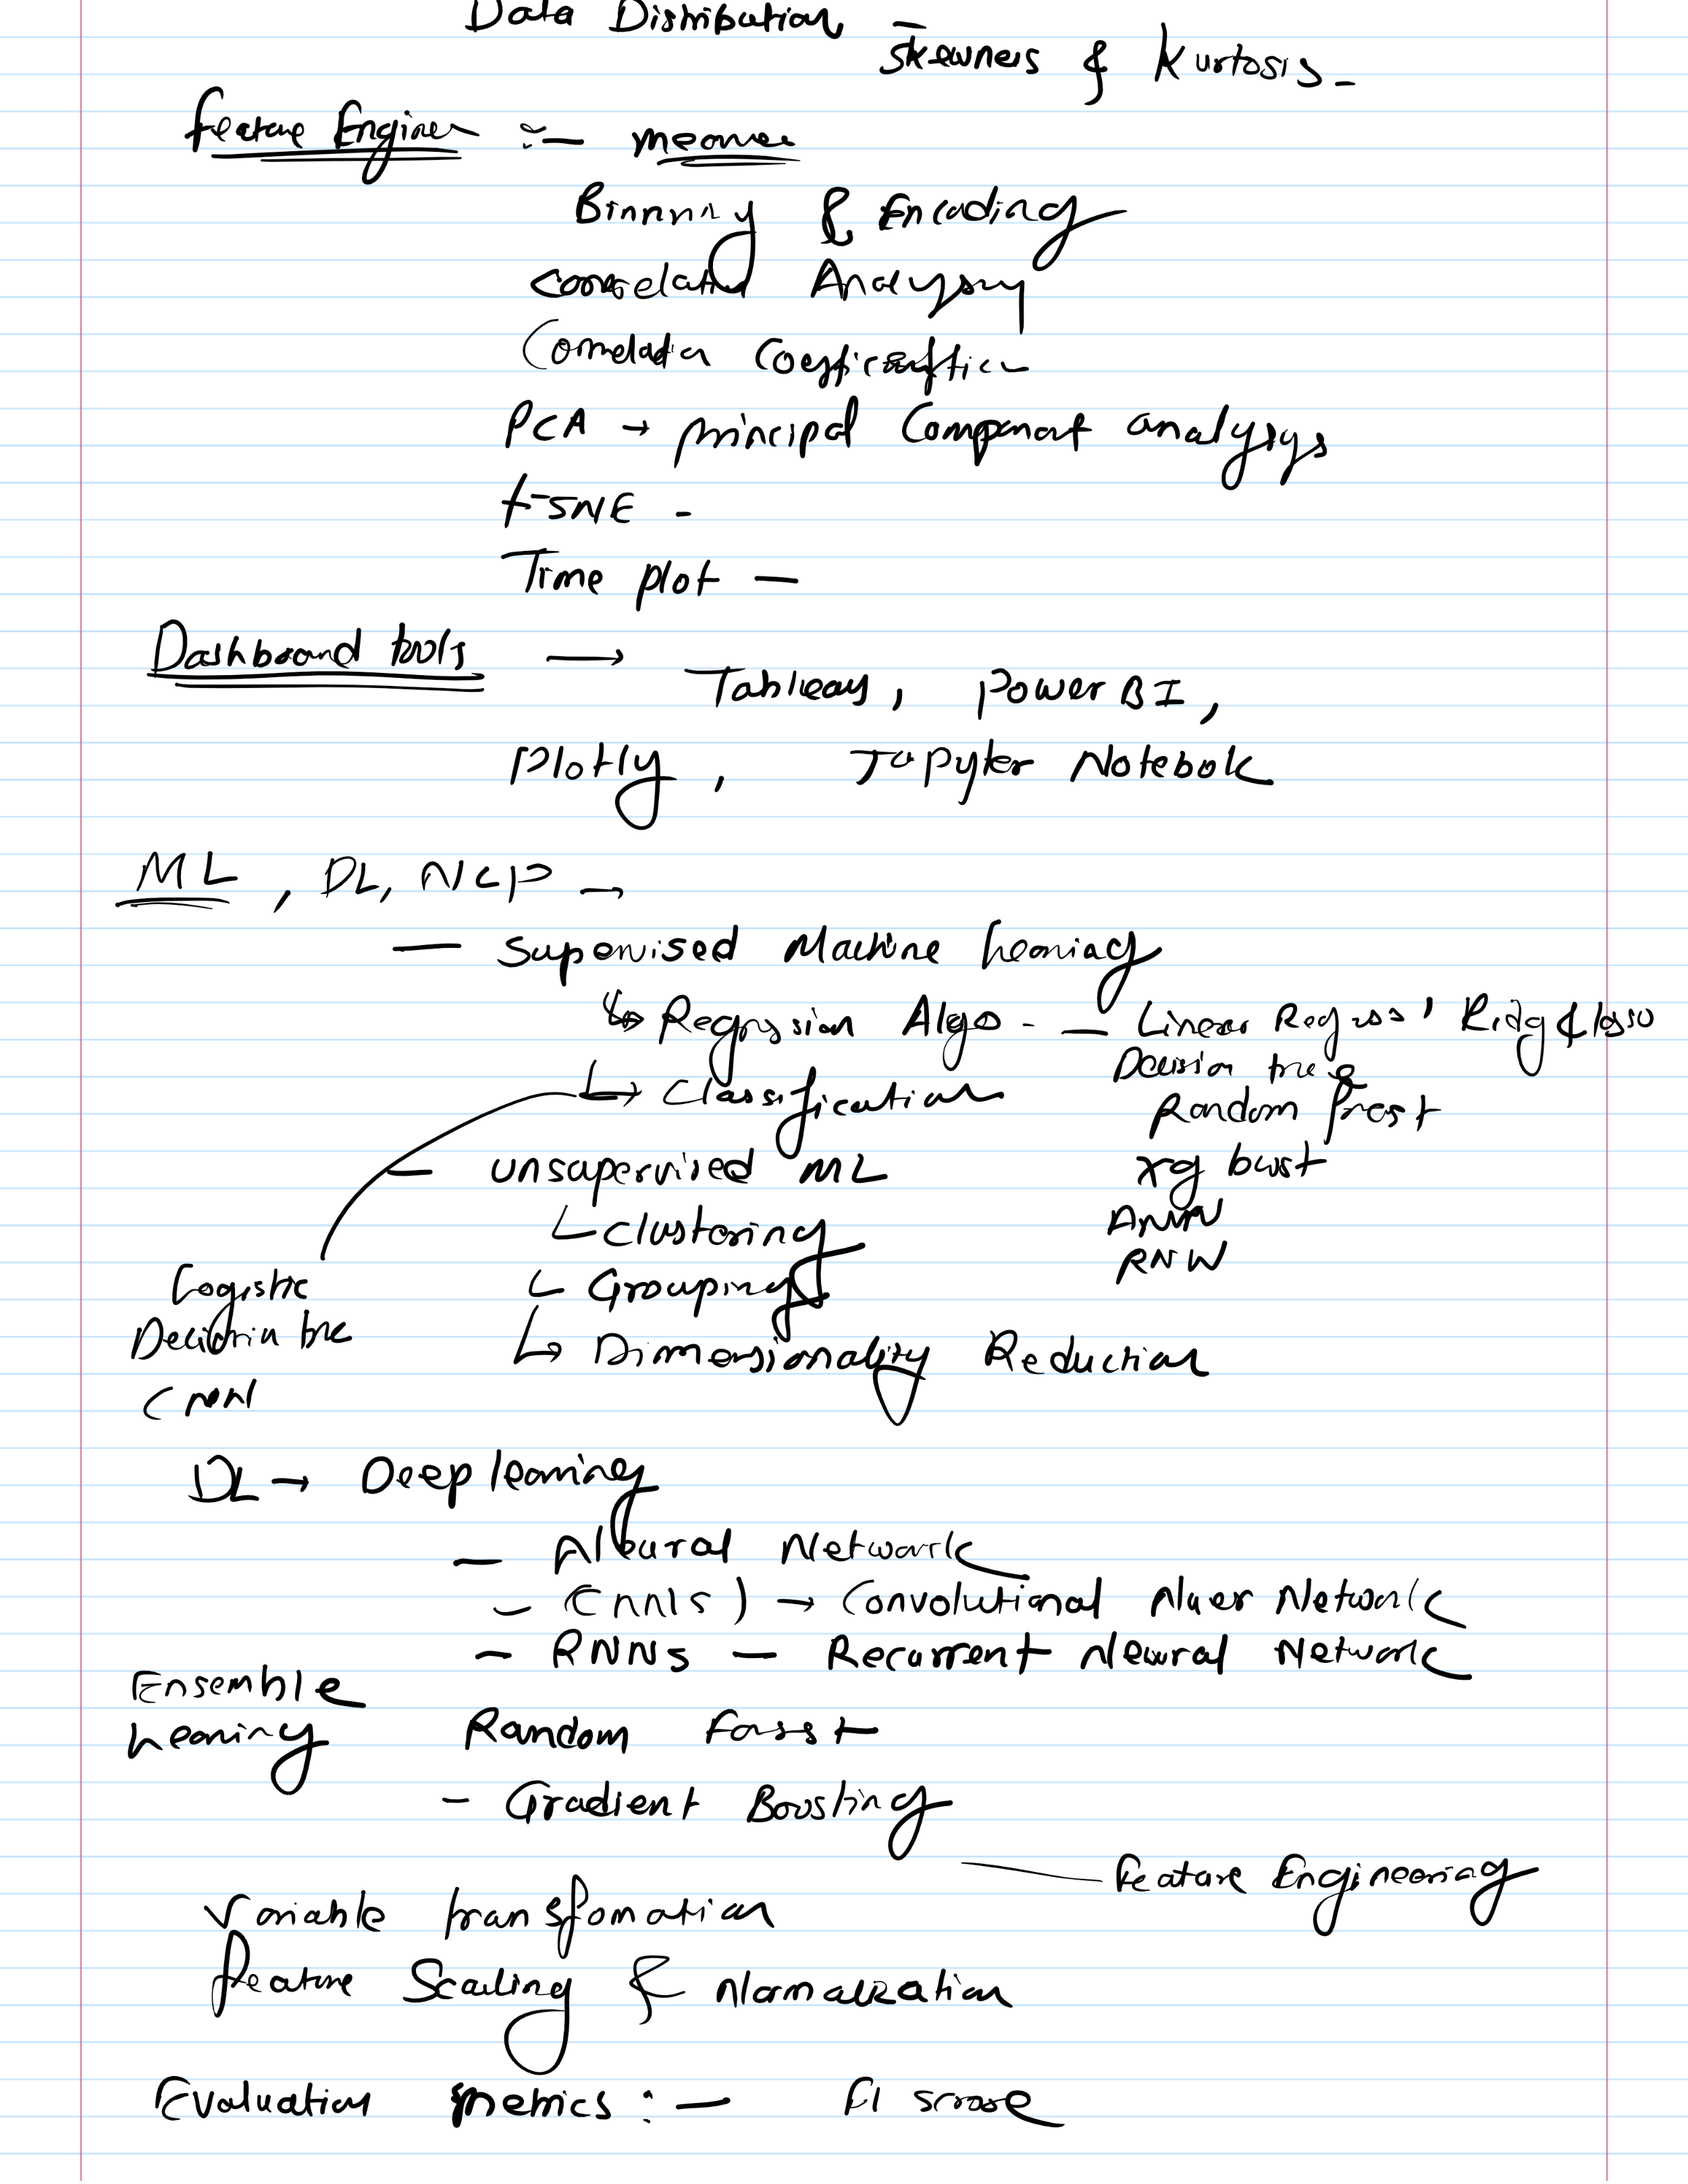 Data Distribution
Skewness & Kurtosis -
Feature Engineer :-
Binning & Encoding
Correlation Analysis
Correlation
PCA → principal Component analysys
t-SNE -
Time plot —
Dashboard tools →
Tableau, Power BI,
Plotly, Jupyter Notebook
ML, DL, NLP →
— Supervised Machine Learning
↳ Regression Algo - — Linear Regress, Ridg & lasso
Decision tree
↳ Classification
Random forest
— Unsupervised ML
xg boost
↳ Clustering
ANN
RNN
↳ Grouping
Logistic
Decision tree
↳ Dimensionality Reduction
CNN
DL → Deep learning
— Neural Network
- CNNs) → Convolutional Nuer Network
- RNNs — Recurrent Neural Network
Ensemble
Learning
Random Forest
- Gradient Boosting
Feature Engineering
Variable transformation
Feature Scaling & Normalization
Evaluation metrics :— F1 score